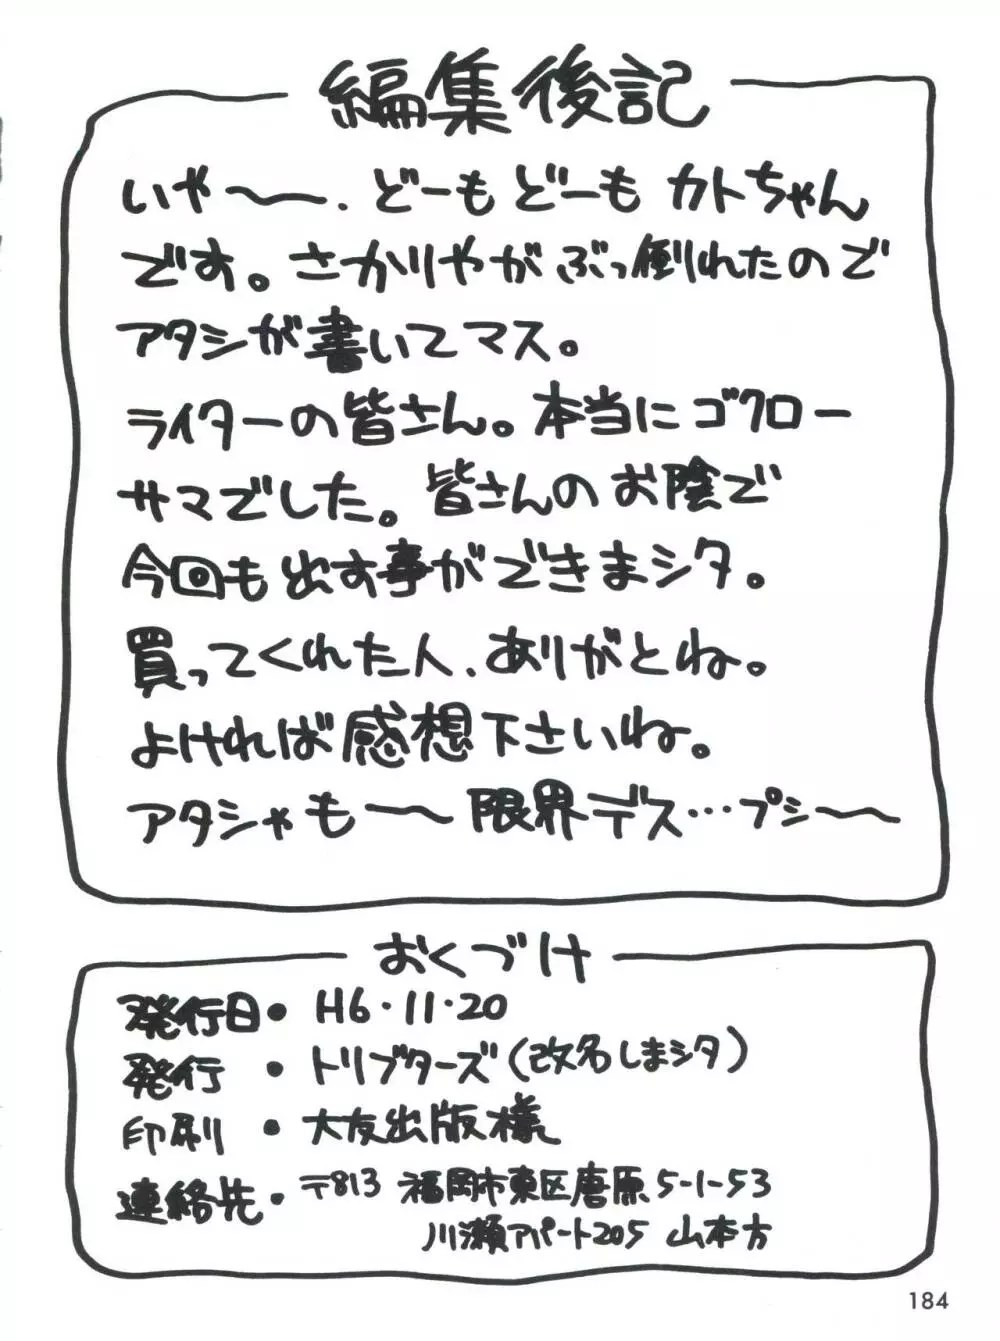 編集後記
いや〜〜、どーもどーもカトちゃん
です。さかりやがぶっ倒れたので
アタシが書いてマス。
ライターの皆さん。本当にゴクロー
サマでした。皆さんのお陰で
今回も出す事ができまシタ。
買ってくれた人、ありがとね。
よければ感想下さいね。
アタシゃも〜〜限界デス…プシ〜〜
おくづけ
発行日・H6・11・20
発行・トリブターズ(改名しまシタ)
印刷・大友出版様
連絡先・〒813 福岡市東区唐原5-1-53
川瀬アパート205 山本方
184